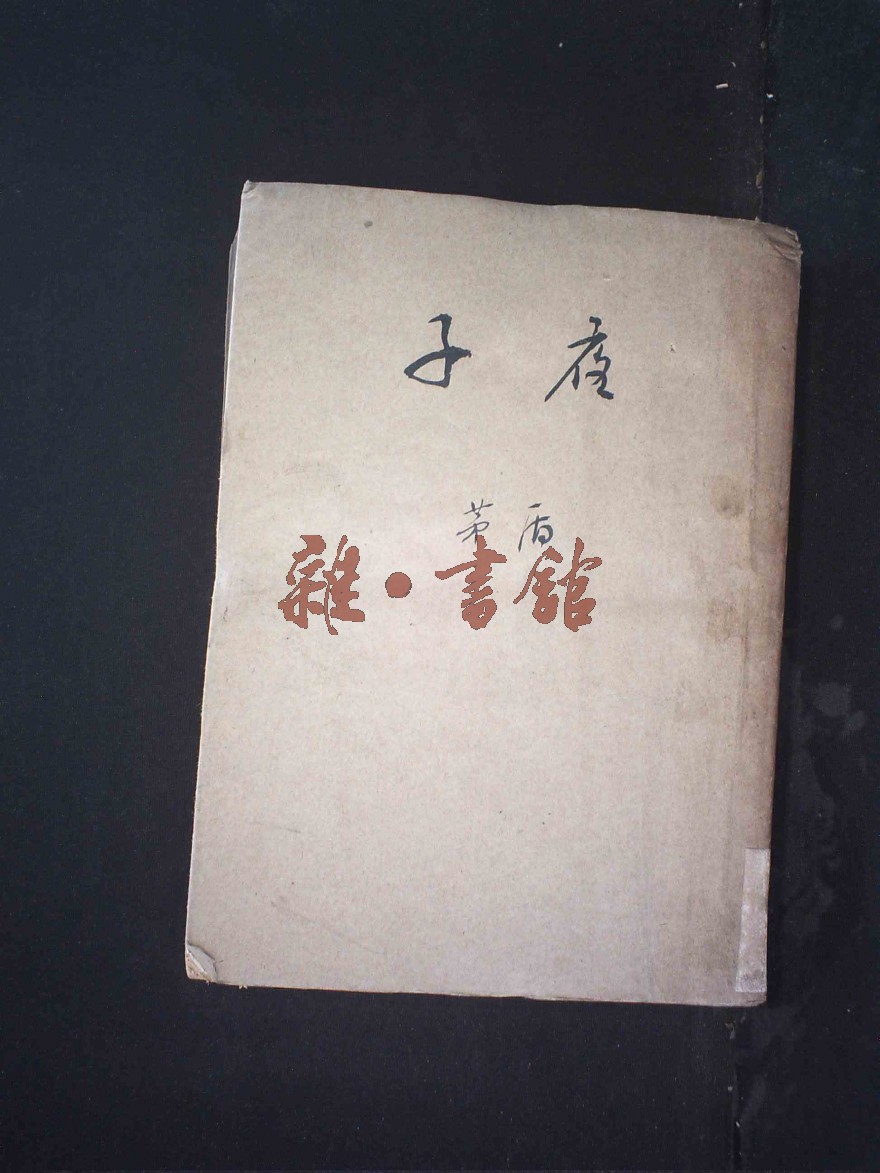 子夜
茅盾
雜·書館